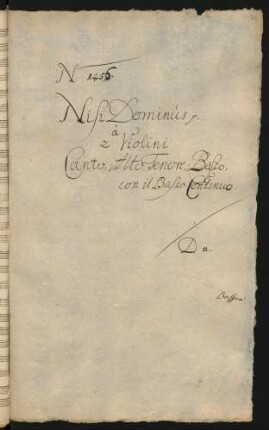 N 1456.
Nisi Dominus,
à
2 Violini
Canto, Alto Tenore, Basso,
con il Basso Continuo.
D